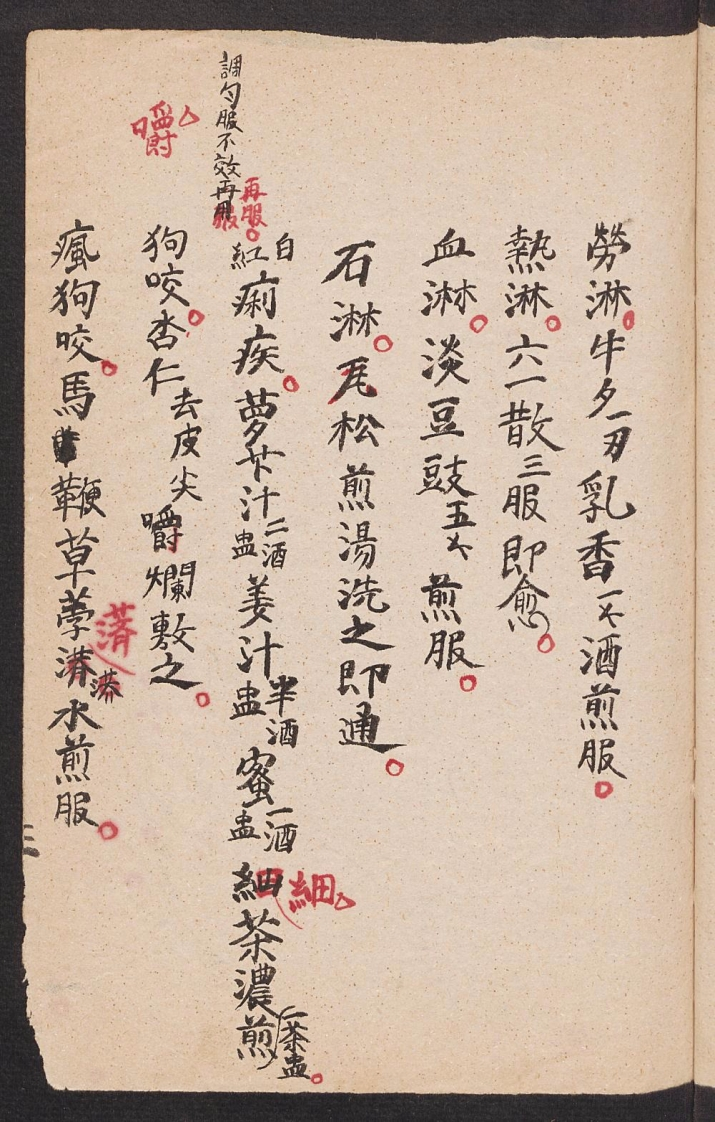 勞淋。牛夕一刃乳香一㐅酒煎服。
熱淋。六一散三服即愈。
血淋。淡豆豉五㐅煎服。
石淋。瓦松煎湯洗之即通。
白紅痢疾。萝卜汁二酒盅姜汁半酒盅蜜一酒盅細茶濃煎一茶盅。
調勻服不效再服
再服。
細
狗咬。杏仁去皮尖嚼爛敷之。
嚼
瘋狗咬。馬鞭草荸薺水煎服。
薺
三